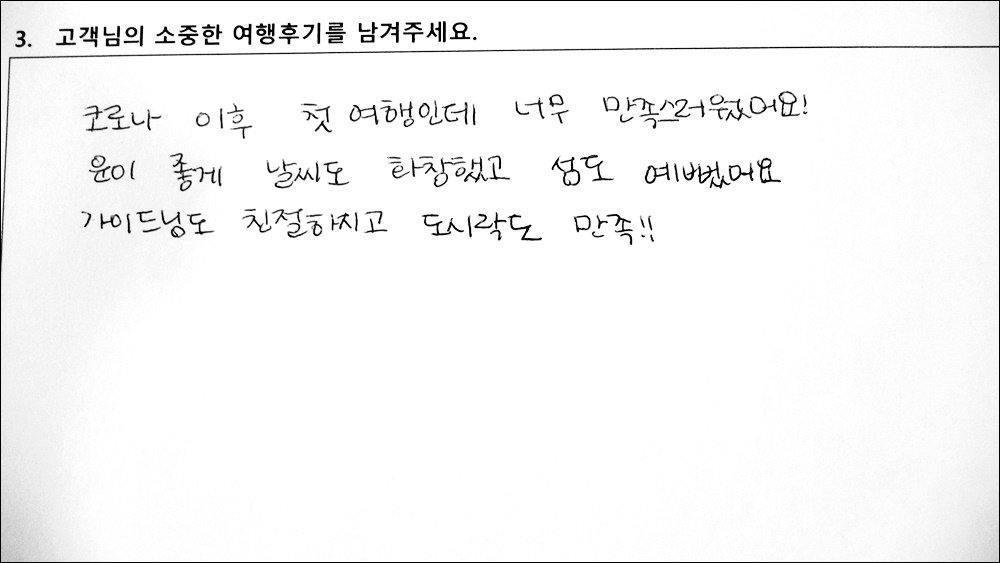 3. 고객님의 소중한 여행후기를 남겨주세요.
코로나 이후 첫 여행인데 너무 만족스러웠어요!
운이 좋게 날씨도 화창했고 섬도 예뻤어요
가이드님도 친절하시고 도시락도 만족!!